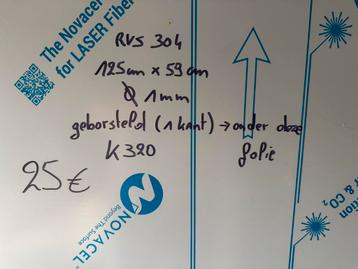 The Novacel
for LASER Fiber
RVS 304
125cm x 59cm
Ø 1mm
geborsteld (1 kant) → onder deze
folie
K320
25€
NOVACEL
Beyond The Surface
& CO₂